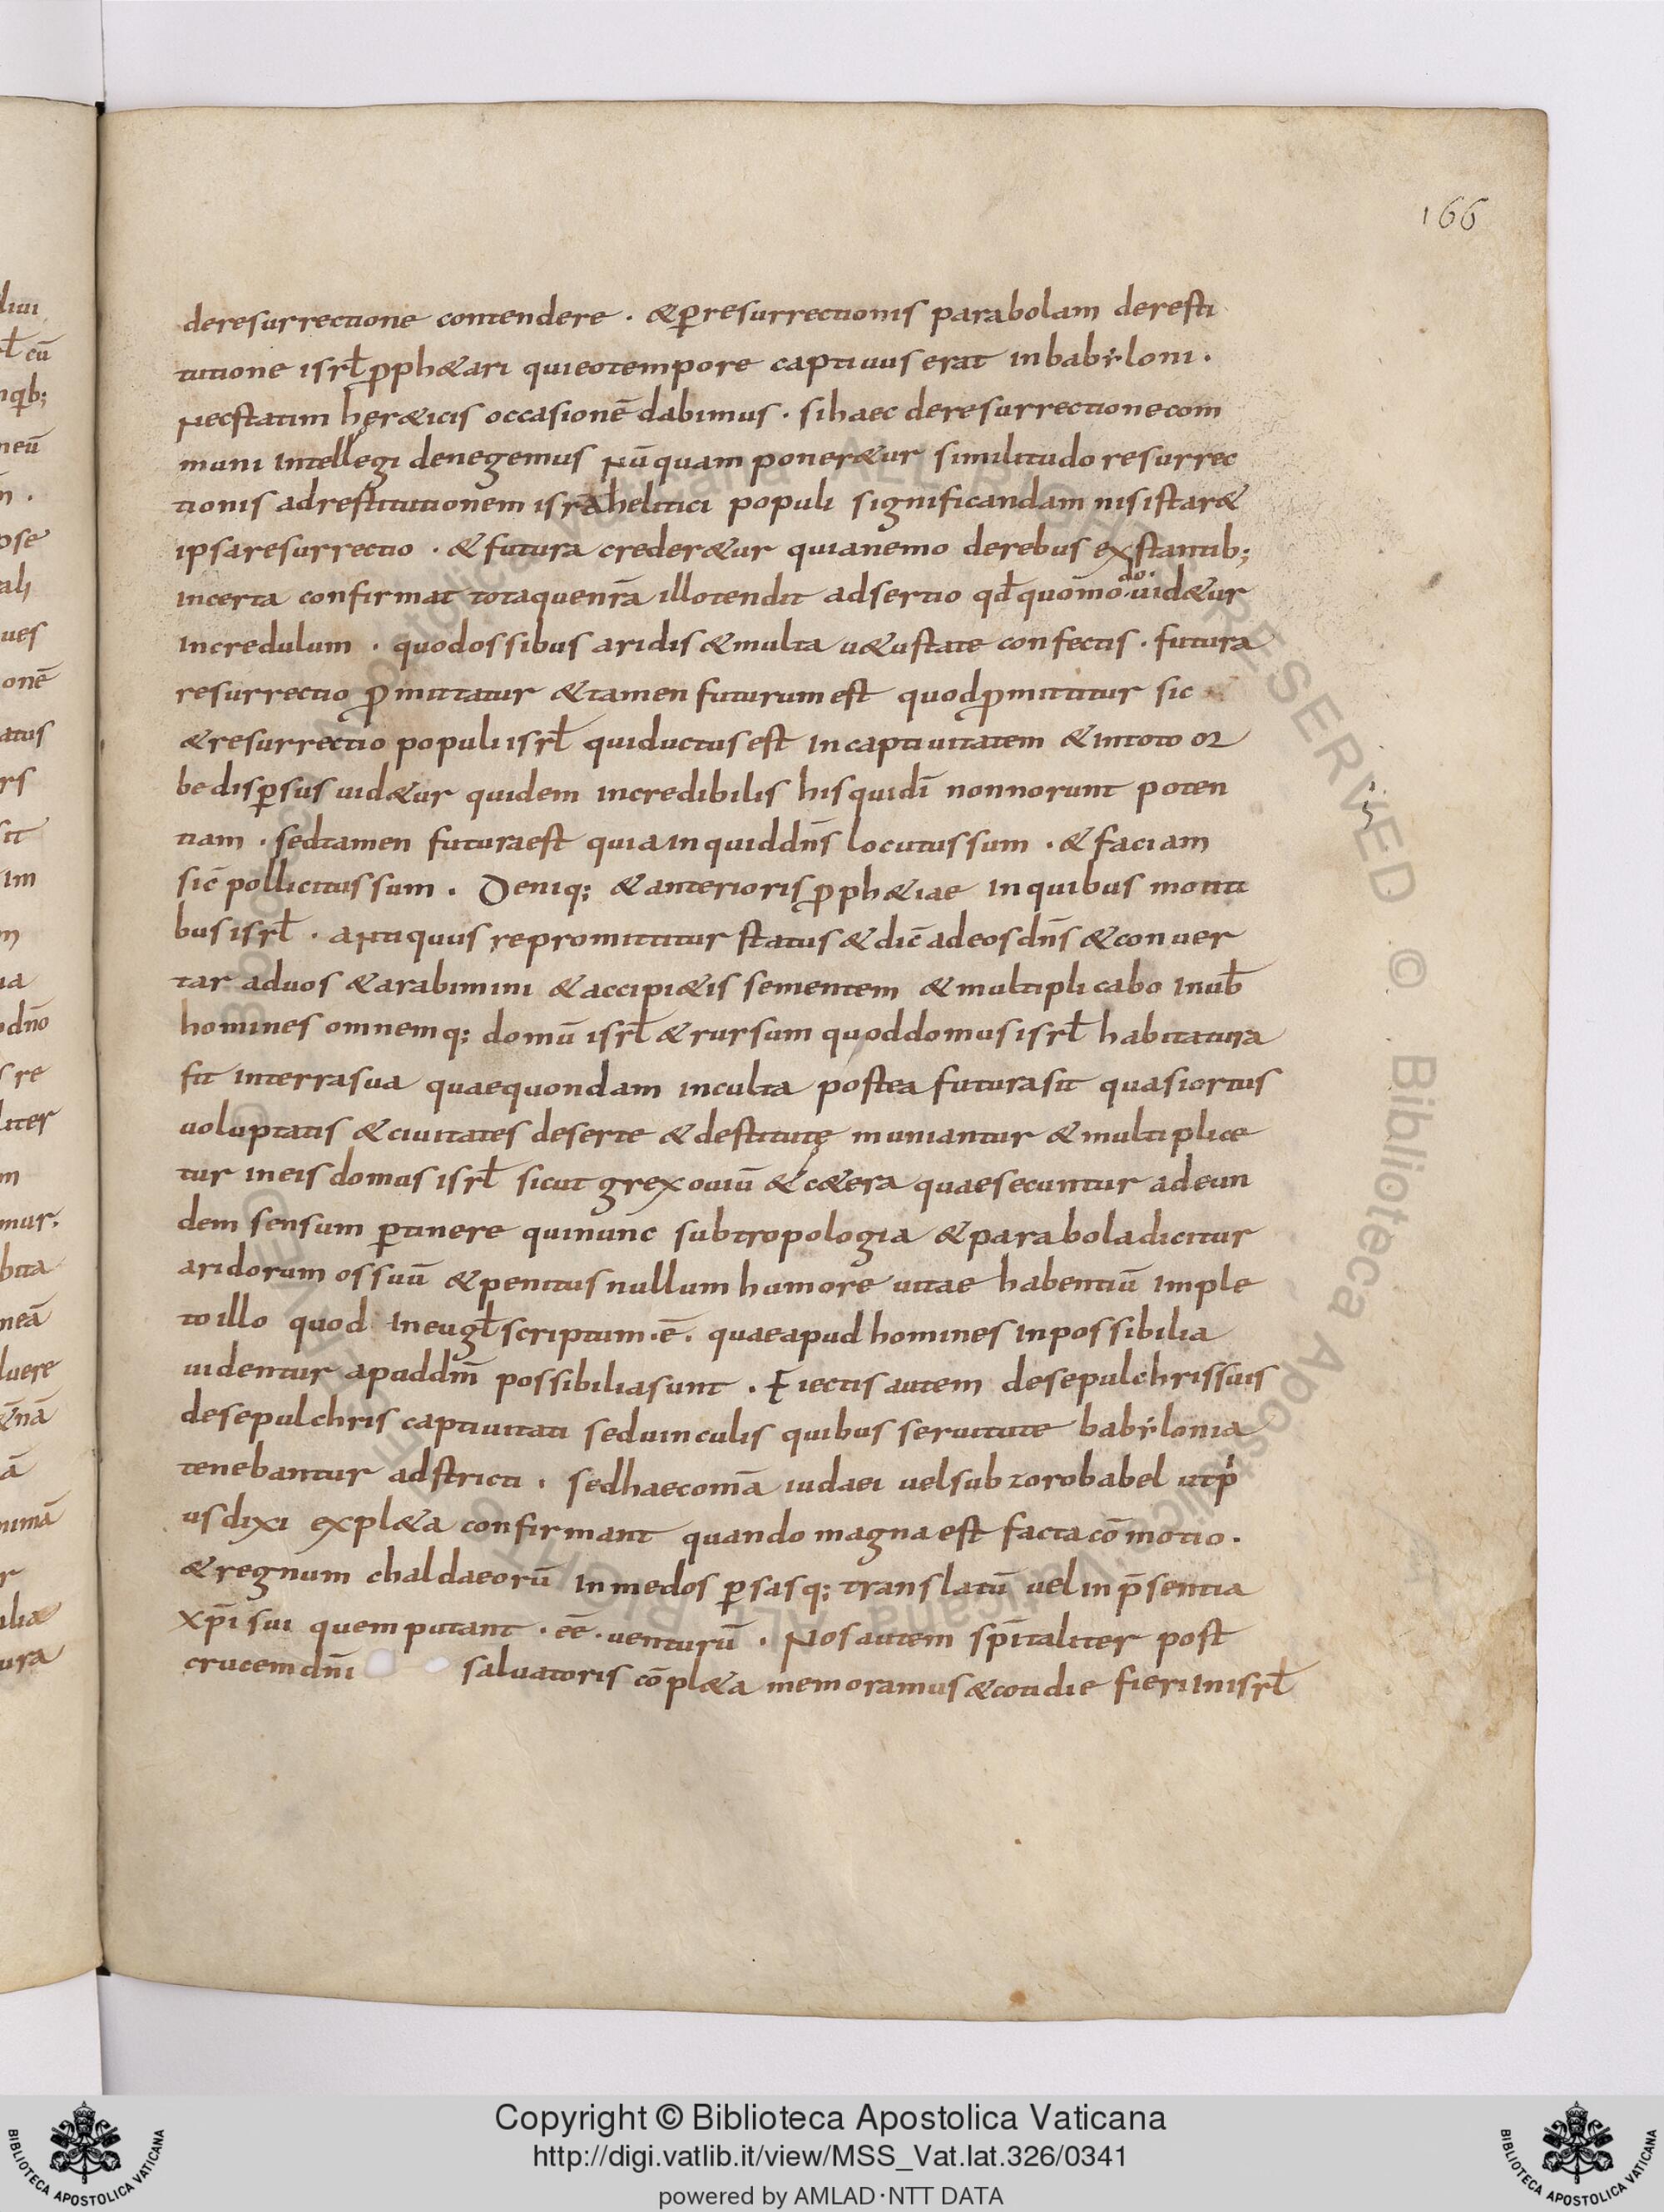 166
deresurrectione contendere . & p̱resurrectionis parabolam deresti
tutione isrł p̱ph&ari quieotempore captiuus erat inbabẏloni .
Necstatim her&icis occasionē dabimus . sihaec deresurrectionecom
muni intellegi denegemus Nūquam poner&ur similitudo resurrec
tionis adrestitutionem israhelitici populi significandam nisistar&
ipsaresurrectio . & futura creder&ur quianemo derebus exstantib;
incerta confirmat totaquenr̄a illotendit adsertio qđ quom̄o do uid&ur
incredulum . quodossibus aridis &multa u&ustate confectis . futura
resurrectio p̱mittatur &tamen futurum est quodp̱mittitur sic
&resurrectio populi isrł quiductus est incaptiuitatem &intoto or
be disp̱sus uid&ur quidem incredibilis his quidī nonnorunt poten
tiam . sedtamen futuraest quia inquiddn̄s locutus sum . & faciam
sic̄ pollicitus sum . Deniq; & anterioris p̱ph&iae in quibus monti
bus isrł . aNtiquus repromittitur status & dic̄ adeos dn̄s &conuer
tar aduos &arabimini &accipi&is sementem &multiplicabo inuƀ
homines omnemq; domū isrł &rursum quoddomus isrł habitatura
sit interrasua quaequondam inculta postea futurasit quasiortus
uoluptatis &ciuitates deserte &destitutę muniantur &multiplice
tur ineis domus isrł sicut grex ouiū &c&era quaesecuntur adeun
dem sensum p̱tinere quinunc subtropologia &paraboladicitur
aridorum ossuū &penitus nullum humore uitae habentiū imple
to illo quod ineugł scriptum .ē. quaeapud homines inpossibilia
uidentur apuddm̄ possibiliasunt . Eiectis autem desepulchrissuis
desepulchris captiuitati seduinculis quibus seruitute babẏlonia
tenebantur adstricti . sedhaecom̄a iudaei uelsub zorobabel utpͥ
us dixi expl&a confirmant quando magna est facta cōmotio .
&regnum chaldaeorū inmedos p̱sasq; translatū uel in p̄sentia
xp̄i sui quem putant . ēē . uenturū . Nos autem sp̄italiter post
crucem dn̄i saluatoris cōpl&a memoramus &cotidie fieri inisrł
Copyright © Biblioteca Apostolica Vaticana
http://digi.vatlib.it/view/MSS_Vat.lat.326/0341
powered by AMLAD·NTT DATA
BIBLIOTECA APOSTOLICA VATICANA
BIBLIOTECA APOSTOLICA VATICANA